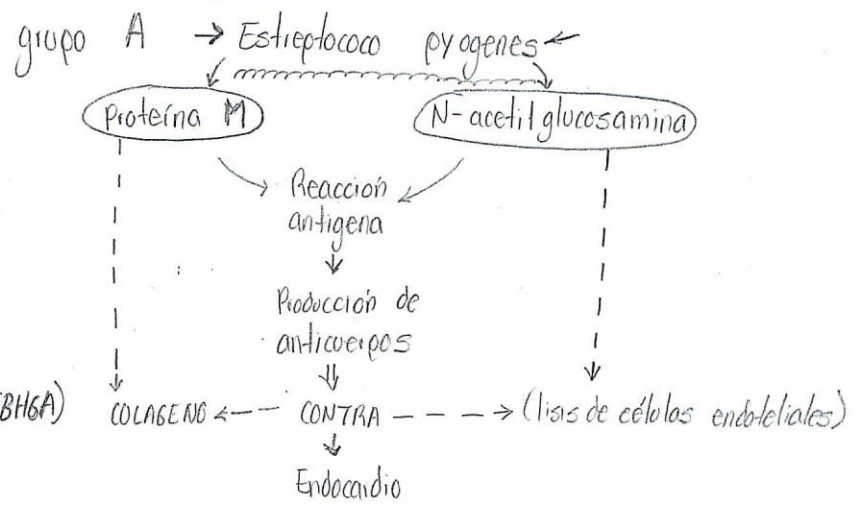 grupo A → Estreptococo pyogenes ←
Proteína M N-acetil glucosamina
Reacción
antigena
Producción de
anticuerpos
BHGA) COLAGENO CONTRA (lisis de células endoteliales)
Endocardio